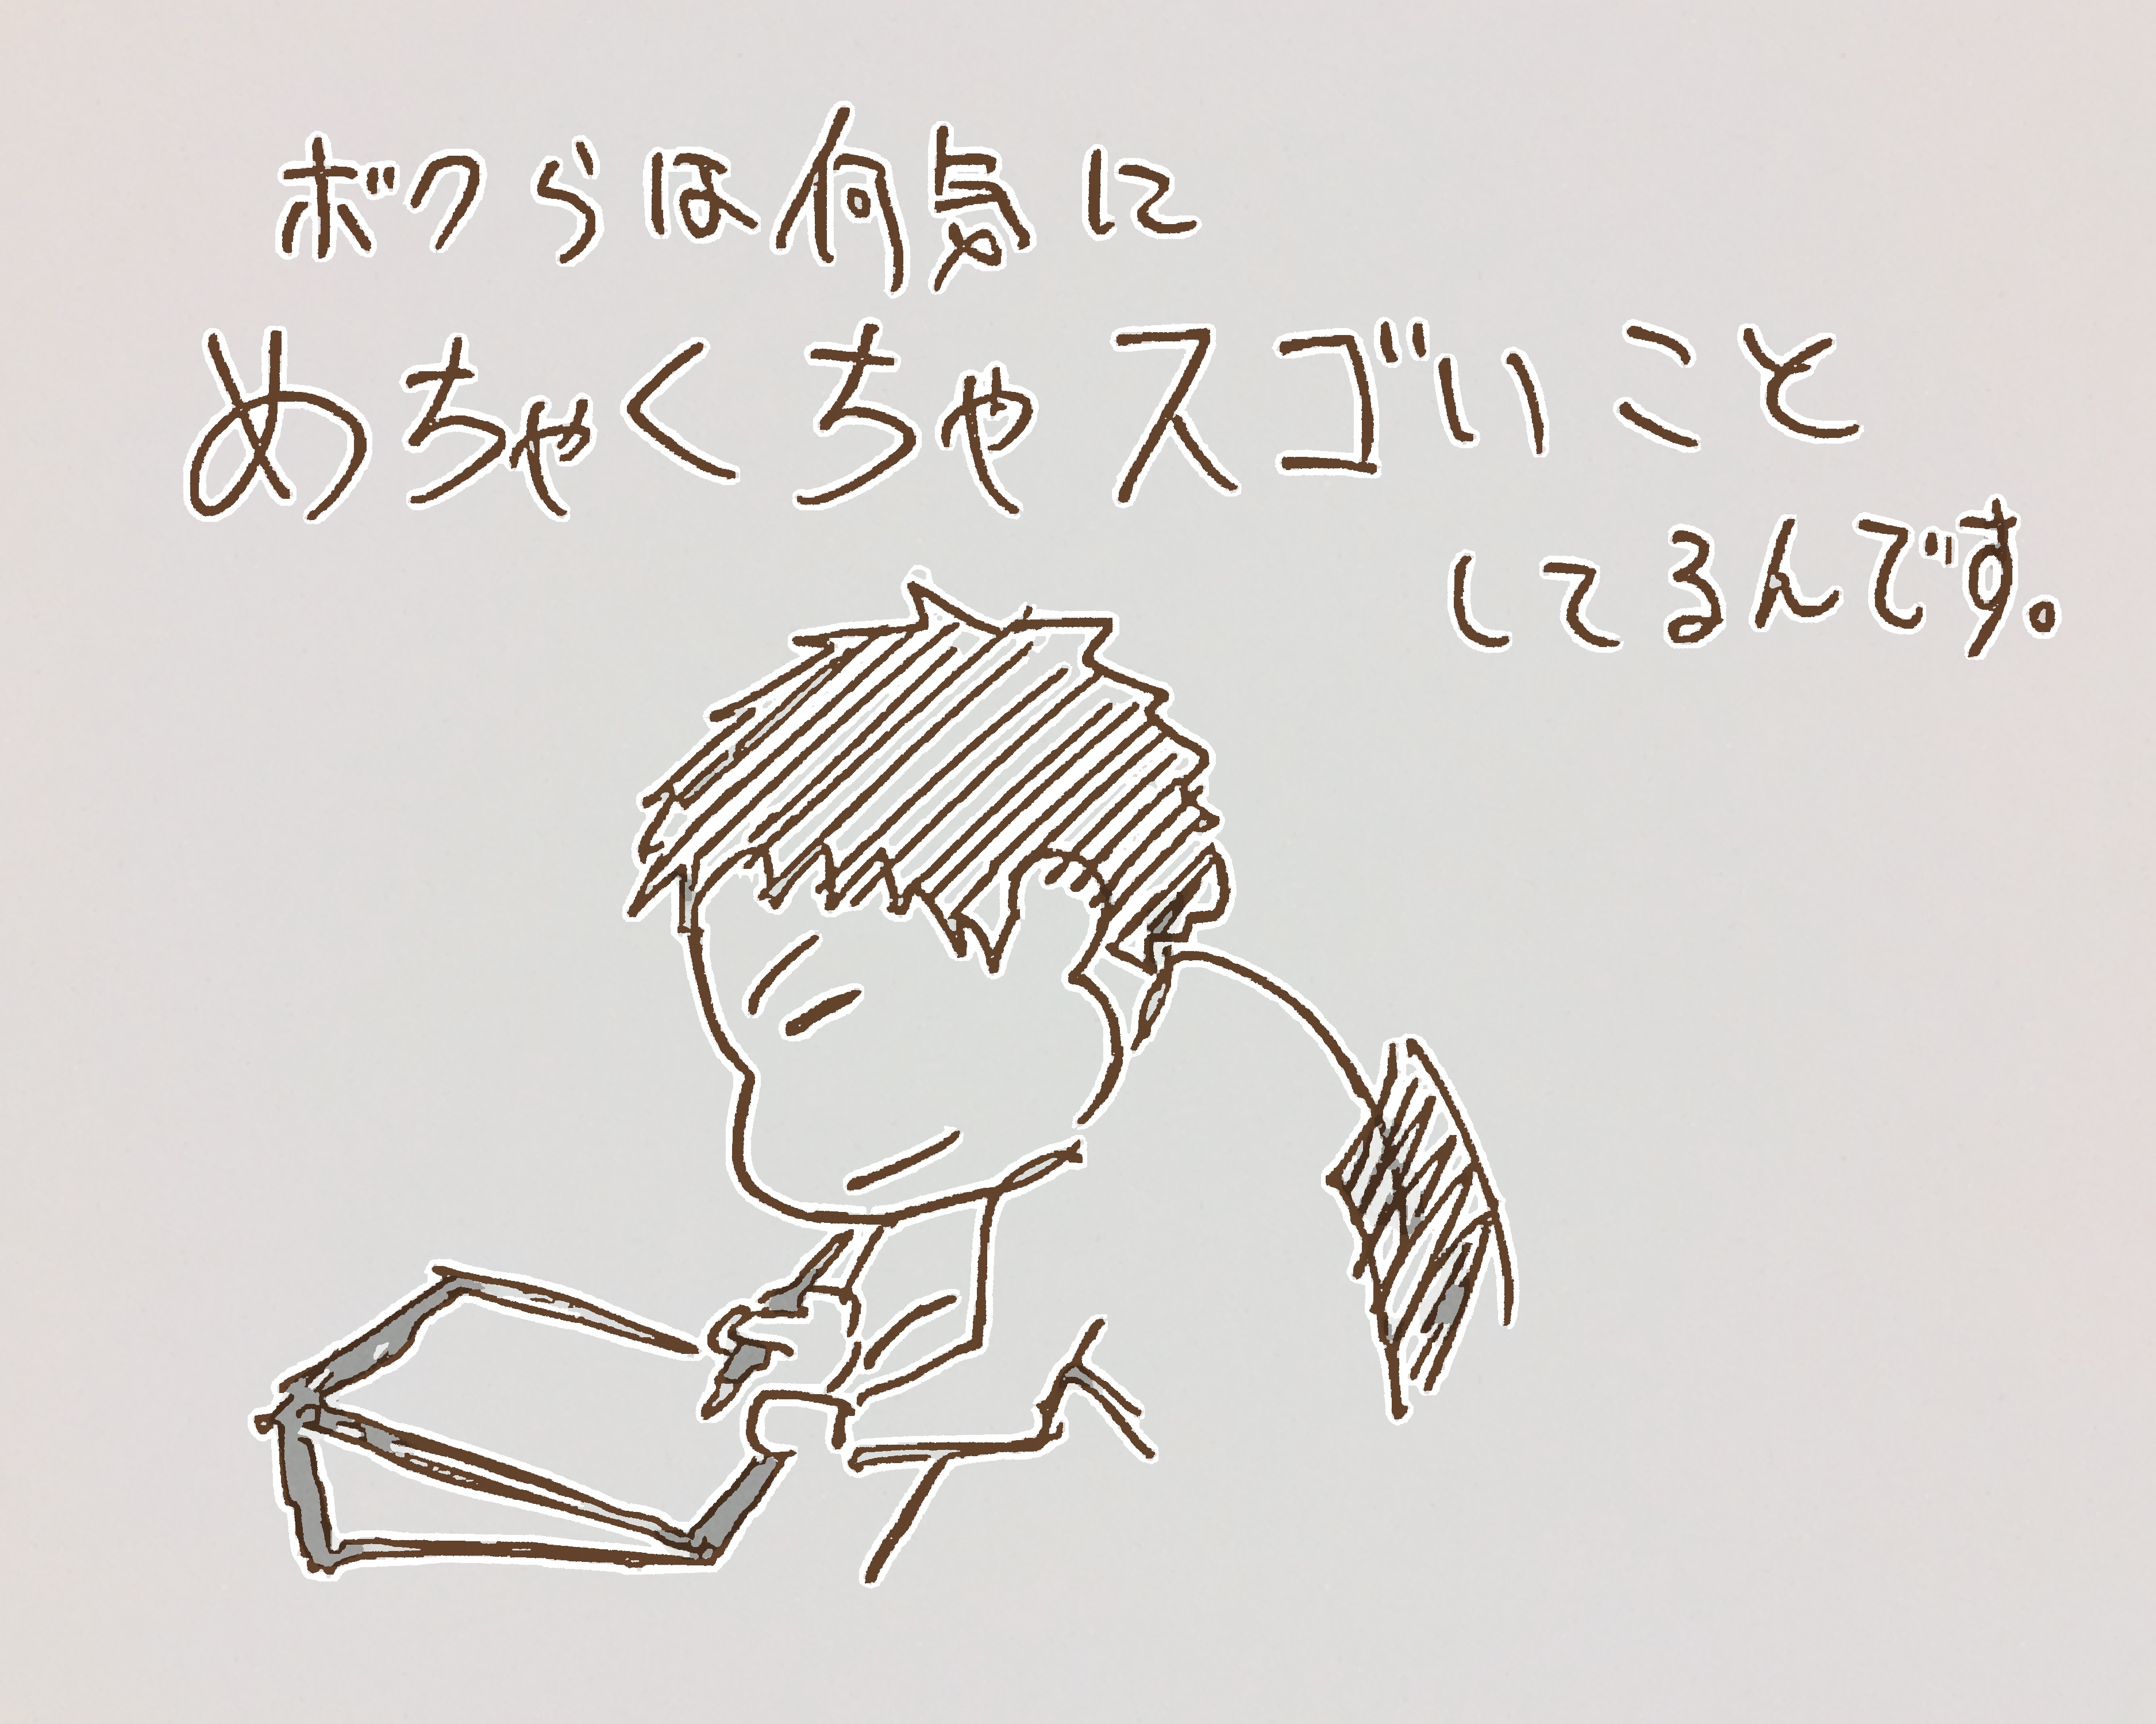 ボクらは何気に
めちゃくちゃスゴいこと
してるんです。